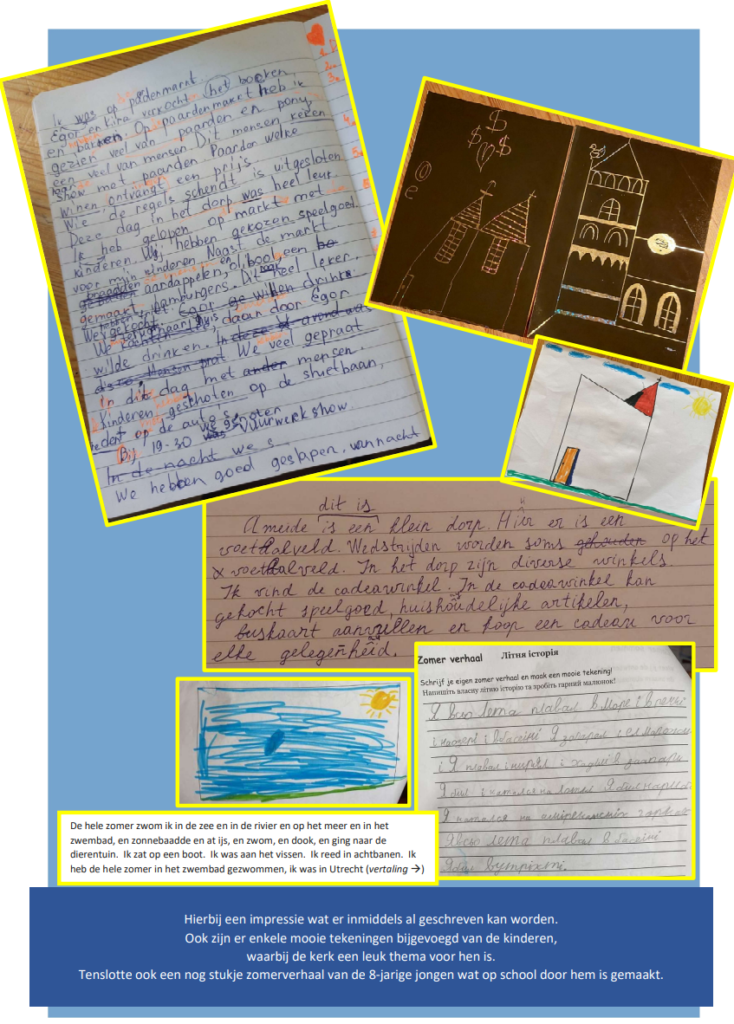 Ik was op paardenmarkt.
Egor en Kira verkocht het boeken,
en barken. Op paardenmarkt heb ik
gezien veel van paarden en pony
een veel van mensen. Dit mensen keken
show met paarden. Paardor welke
winen ontvangt een prijs.
Wie de regels schendt is uitgesloten.
Deze dag in het dorp was heel leuk.
Ik heb gelopen op markt met
kinderen. Wij hebben gekozen speelgoed
voor mijn kinderen. Naast de markt
aardappelen, oliebool, een
gemaakt hamburgers. Dit heel leker.
We
daar door Egor
wilde drinken. We veel gepraat
In die dag met ander mensen.
Kinderen geschoten op de shietbaan,
op de auto's
Bij 19-30 was vuurwerkshow.
In de nacht we s
We hebben goed geslapen, vannacht
$
$ $
@
e
dit is
Ameide is een klein dorp. Hier er is een
voetbalveld. Wedstrijden worden soms gehouden op het
x voetbalveld. In het dorp zijn diverse winkels.
Ik vind de cadeauwinkel. In de cadeauwinkel kan
gekocht speelgoed, huishoudelijke artikelen,
buskaart aanvullen en koop een cadeau voor
elke gelegenheid.
Zomer verhaal Літня історія
Schrijf je eigen zomer verhaal en maak een mooie tekening!
Напишіть власну літню історію та зробіть гарний малюнок!
Я всю лета плавал в море і в речке
і на озері і в басейні Я загорал і ел мороженое
і Я плавал і нирял і ходив в зоопарк
Я був і катался на лодке Я був на рыб
Я катался на амеріканскіх горках
Я всю лета плавал в басейні
Я був в утрихті.
De hele zomer zwom ik in de zee en in de rivier en op het meer en in het
zwembad, en zonnebaadde en at ijs, en zwom, en dook, en ging naar de
dierentuin. Ik zat op een boot. Ik was aan het vissen. Ik reed in achtbanen. Ik
heb de hele zomer in het zwembad gezwommen, ik was in Utrecht (vertaling →)
Hierbij een impressie wat er inmiddels al geschreven kan worden.
Ook zijn er enkele mooie tekeningen bijgevoegd van de kinderen,
waarbij de kerk een leuk thema voor hen is.
Tenslotte ook een nog stukje zomerverhaal van de 8-jarige jongen wat op school door hem is gemaakt.